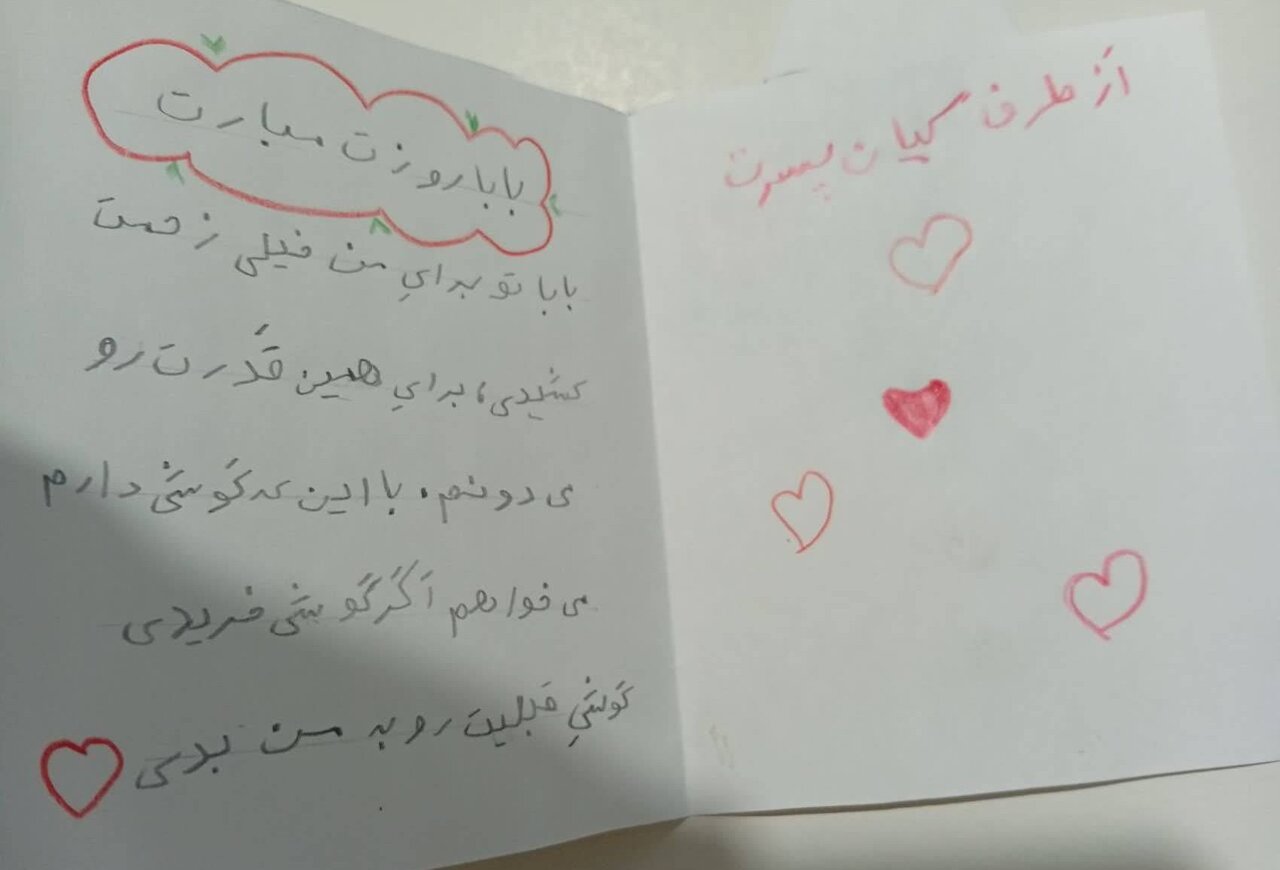 بابا روزت مبارت
بابا تو برایِ من خیلی زحمت
کشیدی، برایِ همین قَدرت رو
می دونم. با این که گوشی دارم
می خواهم اَگَر گوشی خریدی
گوشیِ قبلیت رو به من بدی
اَز طرف کیان پسرت